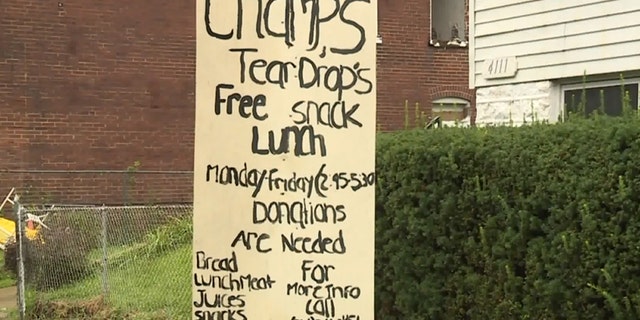 CHAMP'S
Tear-Drop's
Free snack
Lunch
Monday-Friday(2:45-5:30
Donations
Are Needed
Bread
LunchMeat
Juices
snacks
For
More Info
call
4111